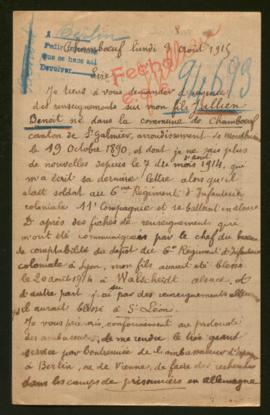 A Berlin
Pedir informes
que se hace así
Devolver
Chambœuf lundi 9 août 1915
Fecha
9/2693
Sire
Je viens à vous demander
des renseignements sur mon fils Jullien
Benoit né dans la commune de Chambœuf
canton de St Galmier, arrondissement de Montbrison
le 19 Octobre 1890, et dont je ne sais plus
de nouvelles depuis le 7 août 1914, que
m'a écrit sa dernière lettre alors qu'il
était soldat au 6me Régiment d'Infanterie
coloniale 11e Compagnie et se battant en alsace
D'après des fiches de renseignement qui
m'ont été communiquées par le chef du bureau
de comptabilité du dépôt du 6me Régiment d'Infanterie
coloniale à Lyon, mon fils aurait été blessé
le 20 août 1914 à Walscheidt alsace, et
d'autre part j'ai su par des renseignements
il aurait blessé à St Léon.
Je vous prie
de me rendre le très grand
service par l'entremise de l'ambassadeur d'Espagne
à Berlin, ou de Vienne, de faire des recherches
dans les camps de prisonniers en allemagne